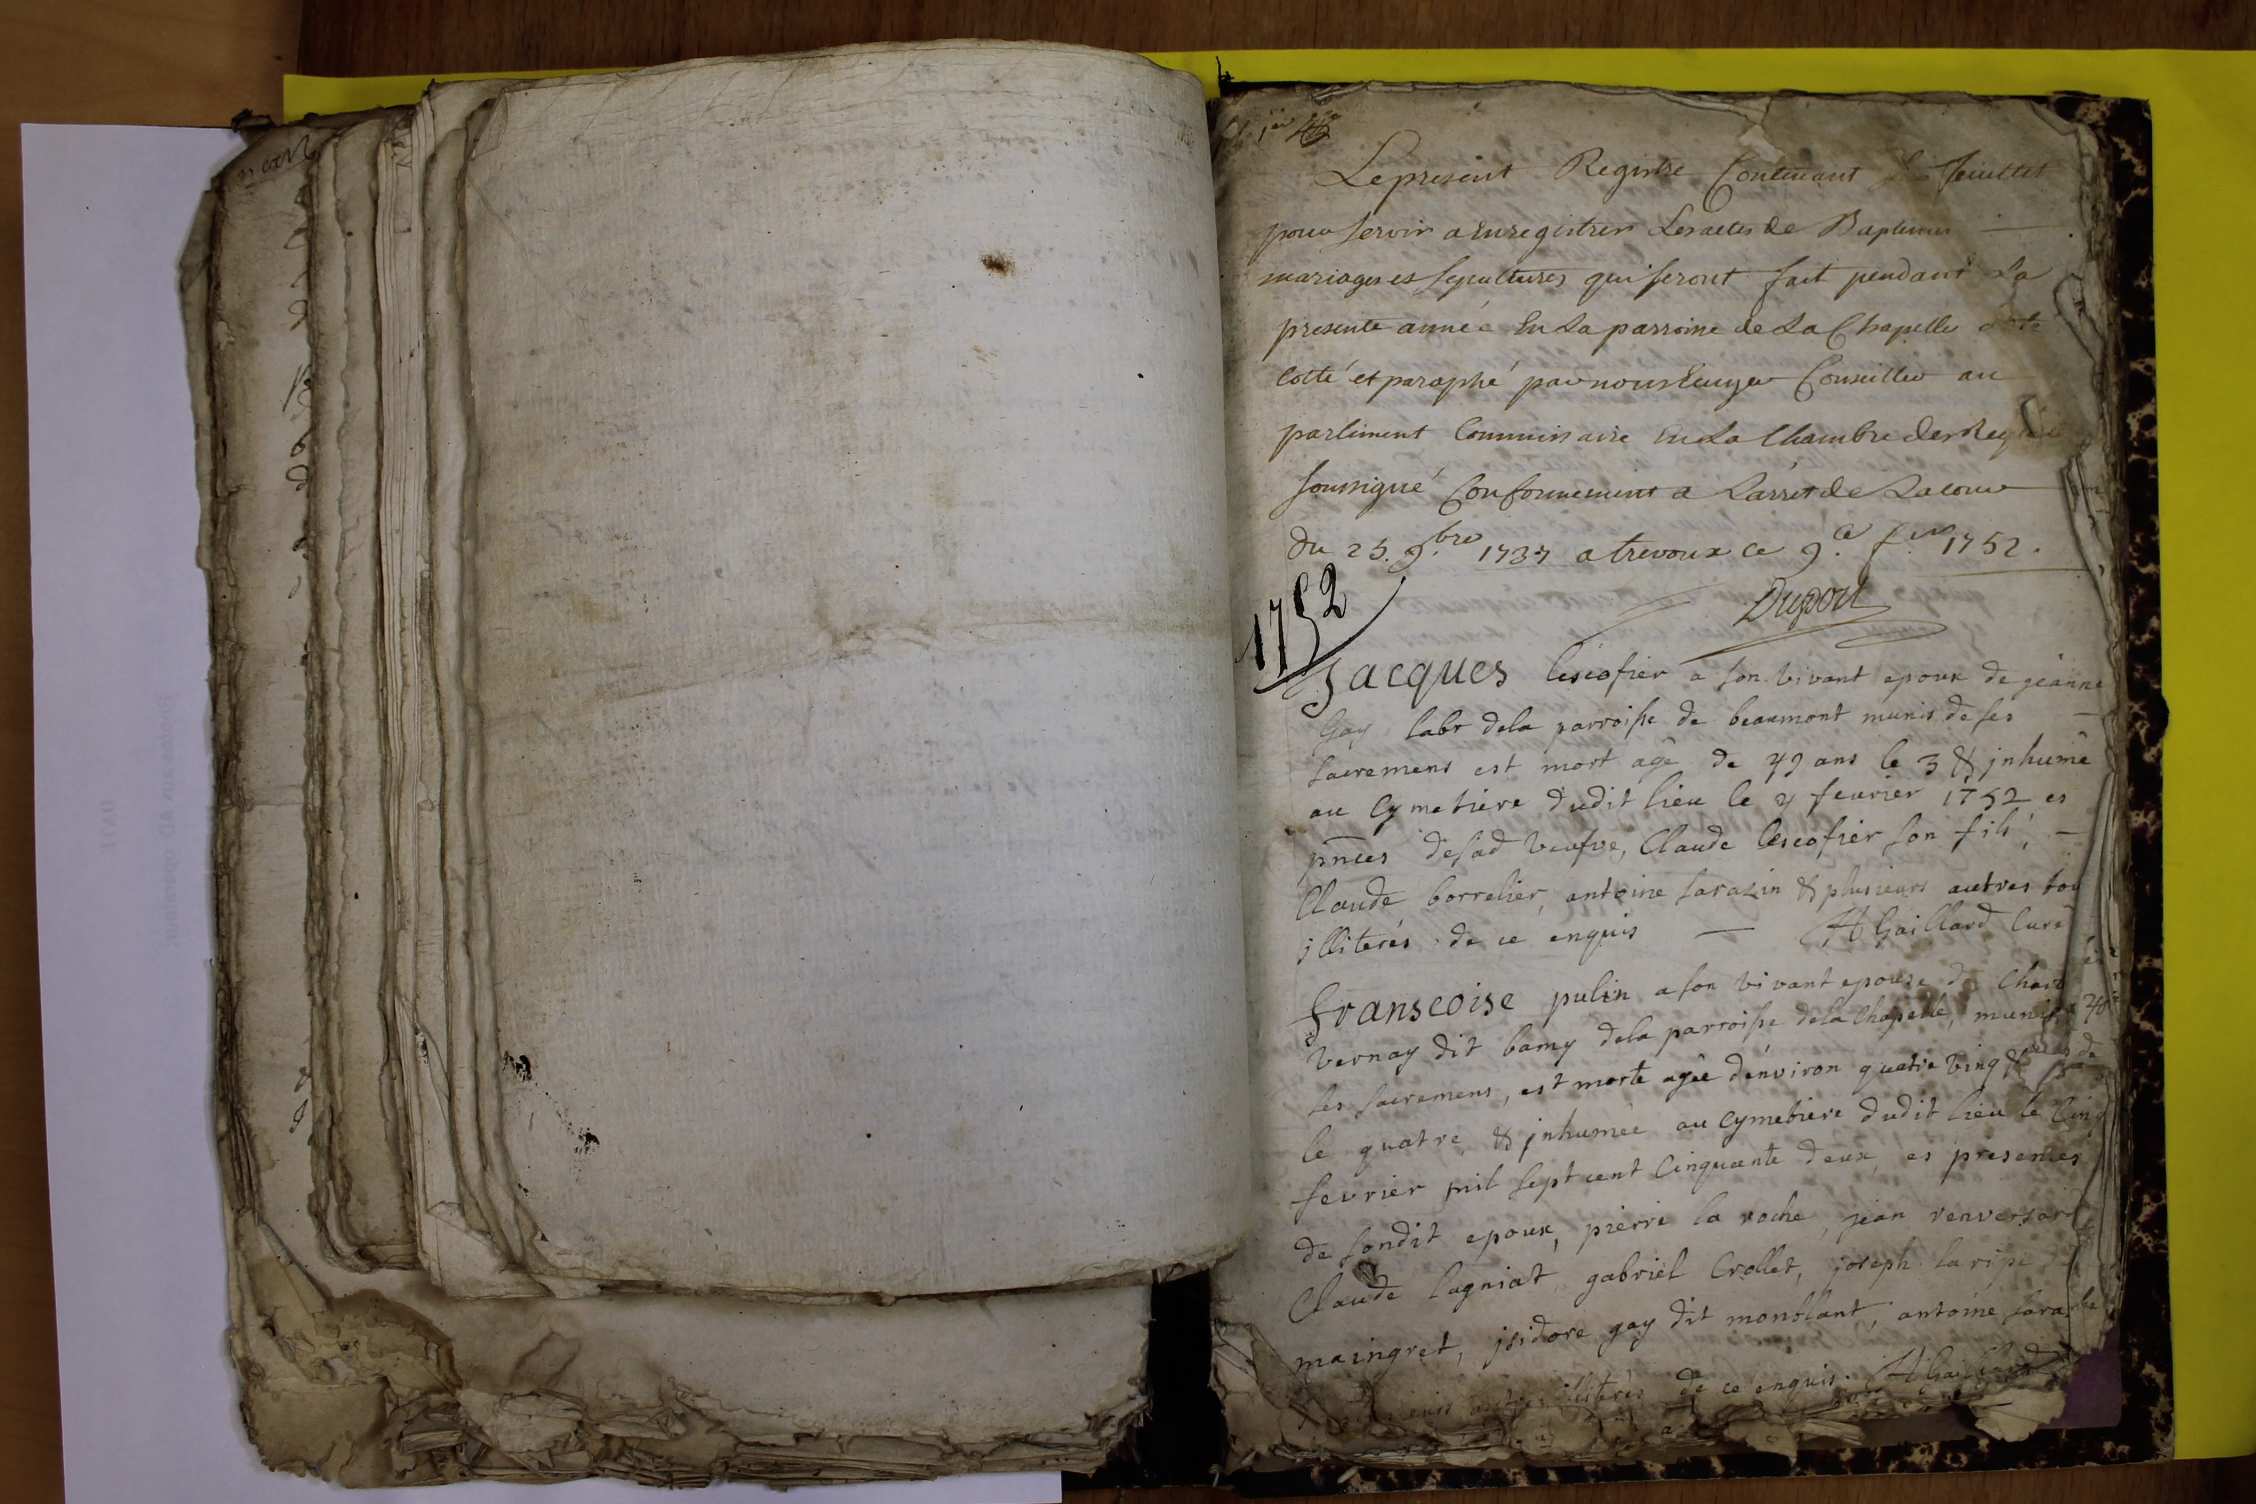 Le present Registre Contenant feuillet
pour servir a Enregistrer Les actes de Baptemes
mariages et sepultures qui seront fait pendant La
presente année En La parroisse de La Chapelle
cotté et paraphé par nous Ecuyer Conseiller au
parlement Commissaire En La Chambre des Req
soussigné Conformement a L'arret de La cour
du 25. 9.bre 1737 a trevoux ce 9.e f.er 1752.
Duport
1752
Jacques lescofier a son vivant epoux de jeanne
Gay labr dela parroisse de beaumont munis de ses
sacremens est mort agé de 49 ans le 3 & jnhumé
au Cymetiere dudit lieu le 4 feurier 1752 es
pnces de sad veufve, Claude lescofier son fils,
Claude borrelier, antoine sarazin & plusieurs autres tou
jlliterés de ce enquis A Gaillard Curé
franscoise pulin a son vivant epouse de
vernay dit bamy dela parroisse dela Chapelle, munie
ses sacremens, est morte agée d'énviron quatre ving
le quatre & jnhumée au Cymetiere dudit lieu le Cinq
fevrier mil sept cent Cinquante deux, es presences
de sondit epoux, pierre la roche, jean renversard
Claude lagniat, gabriel Crollet, joseph laripe
maingret, jsidore gay dit monblant, antoine
autres jlliterés de ce enquis. A Gaillard